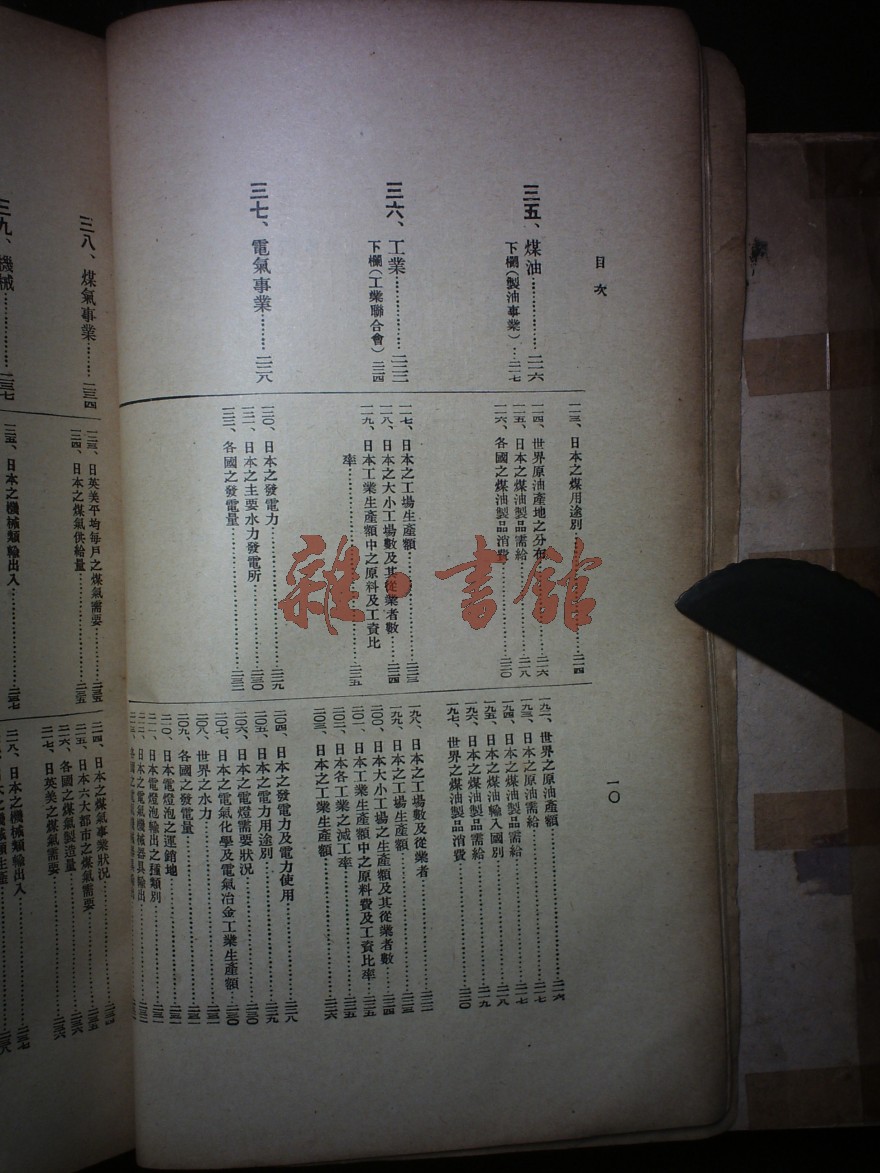 目次
一〇
三五、煤油……………二一六
下欄(製油事業)…二一七
三六、工業……………二二二
下欄(工業聯合會)二二四
三七、電氣事業………二二八
一一三、日本之煤用途別……二一四
一一四、世界原油產地之分布……二一六
一一五、日本之煤油製品需給……二一八
一一六、各國之煤油製品消費……二二〇
一一七、日本之工場生產額……二二三
一一八、日本之大小工場數及其從業者數……二二四
一一九、日本工業生產額中之原料及工資比
率……二二五
一二〇、日本之發電力……二二九
一二一、日本之主要水力發電所……二三〇
一二二、各國之發電量……二三一
一九二、世界之原油產額……二一六
一九三、日本之原油需給……二一七
一九四、日本之煤油製品需給……二一七
一九五、日本之煤油輸入國別……二一八
一九六、日本之煤油製品需給……二一九
一九七、世界之煤油製品消費……二二〇
一九八、日本之工場數及從業者……二二二
一九九、日本之工場生產額……二二三
二〇〇、日本大小工場之生產額及其從業者數……二二四
二〇一、日本工業生產額中之原料費及工資比率……二二五
二〇二、日本各工業之減工率……二二五
二〇三、日本之工業生產額……二二六
二〇四、日本之發電力及電力使用……二二八
二〇五、日本之電力用途別……二二九
二〇六、日本之電燈需要狀況……二三〇
二〇七、日本之電氣化學及電氣冶金工業生產額……二三〇
二〇八、世界之水力……二三一
二〇九、各國之發電量……二三一
二一〇、日本電燈泡之運銷地……二三二
二一一、日本電燈泡輸出之種類別……二三二
二一二、日本之電氣機械器具輸出……二三二
三八、煤氣事業………二三四
三九、機械……………二三七
一二三、日英美平均每戶之煤氣需要……二三五
一二四、日本之煤氣供給量……二三五
一二五、日本之機械類輸出入……二三七
二一四、日本之煤氣事業狀況……二三四
二一五、日本六大都市之煤氣需要……二三五
二一六、各國之煤氣製造量……二三六
二一七、日英美之煤氣需要……二三六
二一八、日本之機械類輸出入……二三七
雜·書館